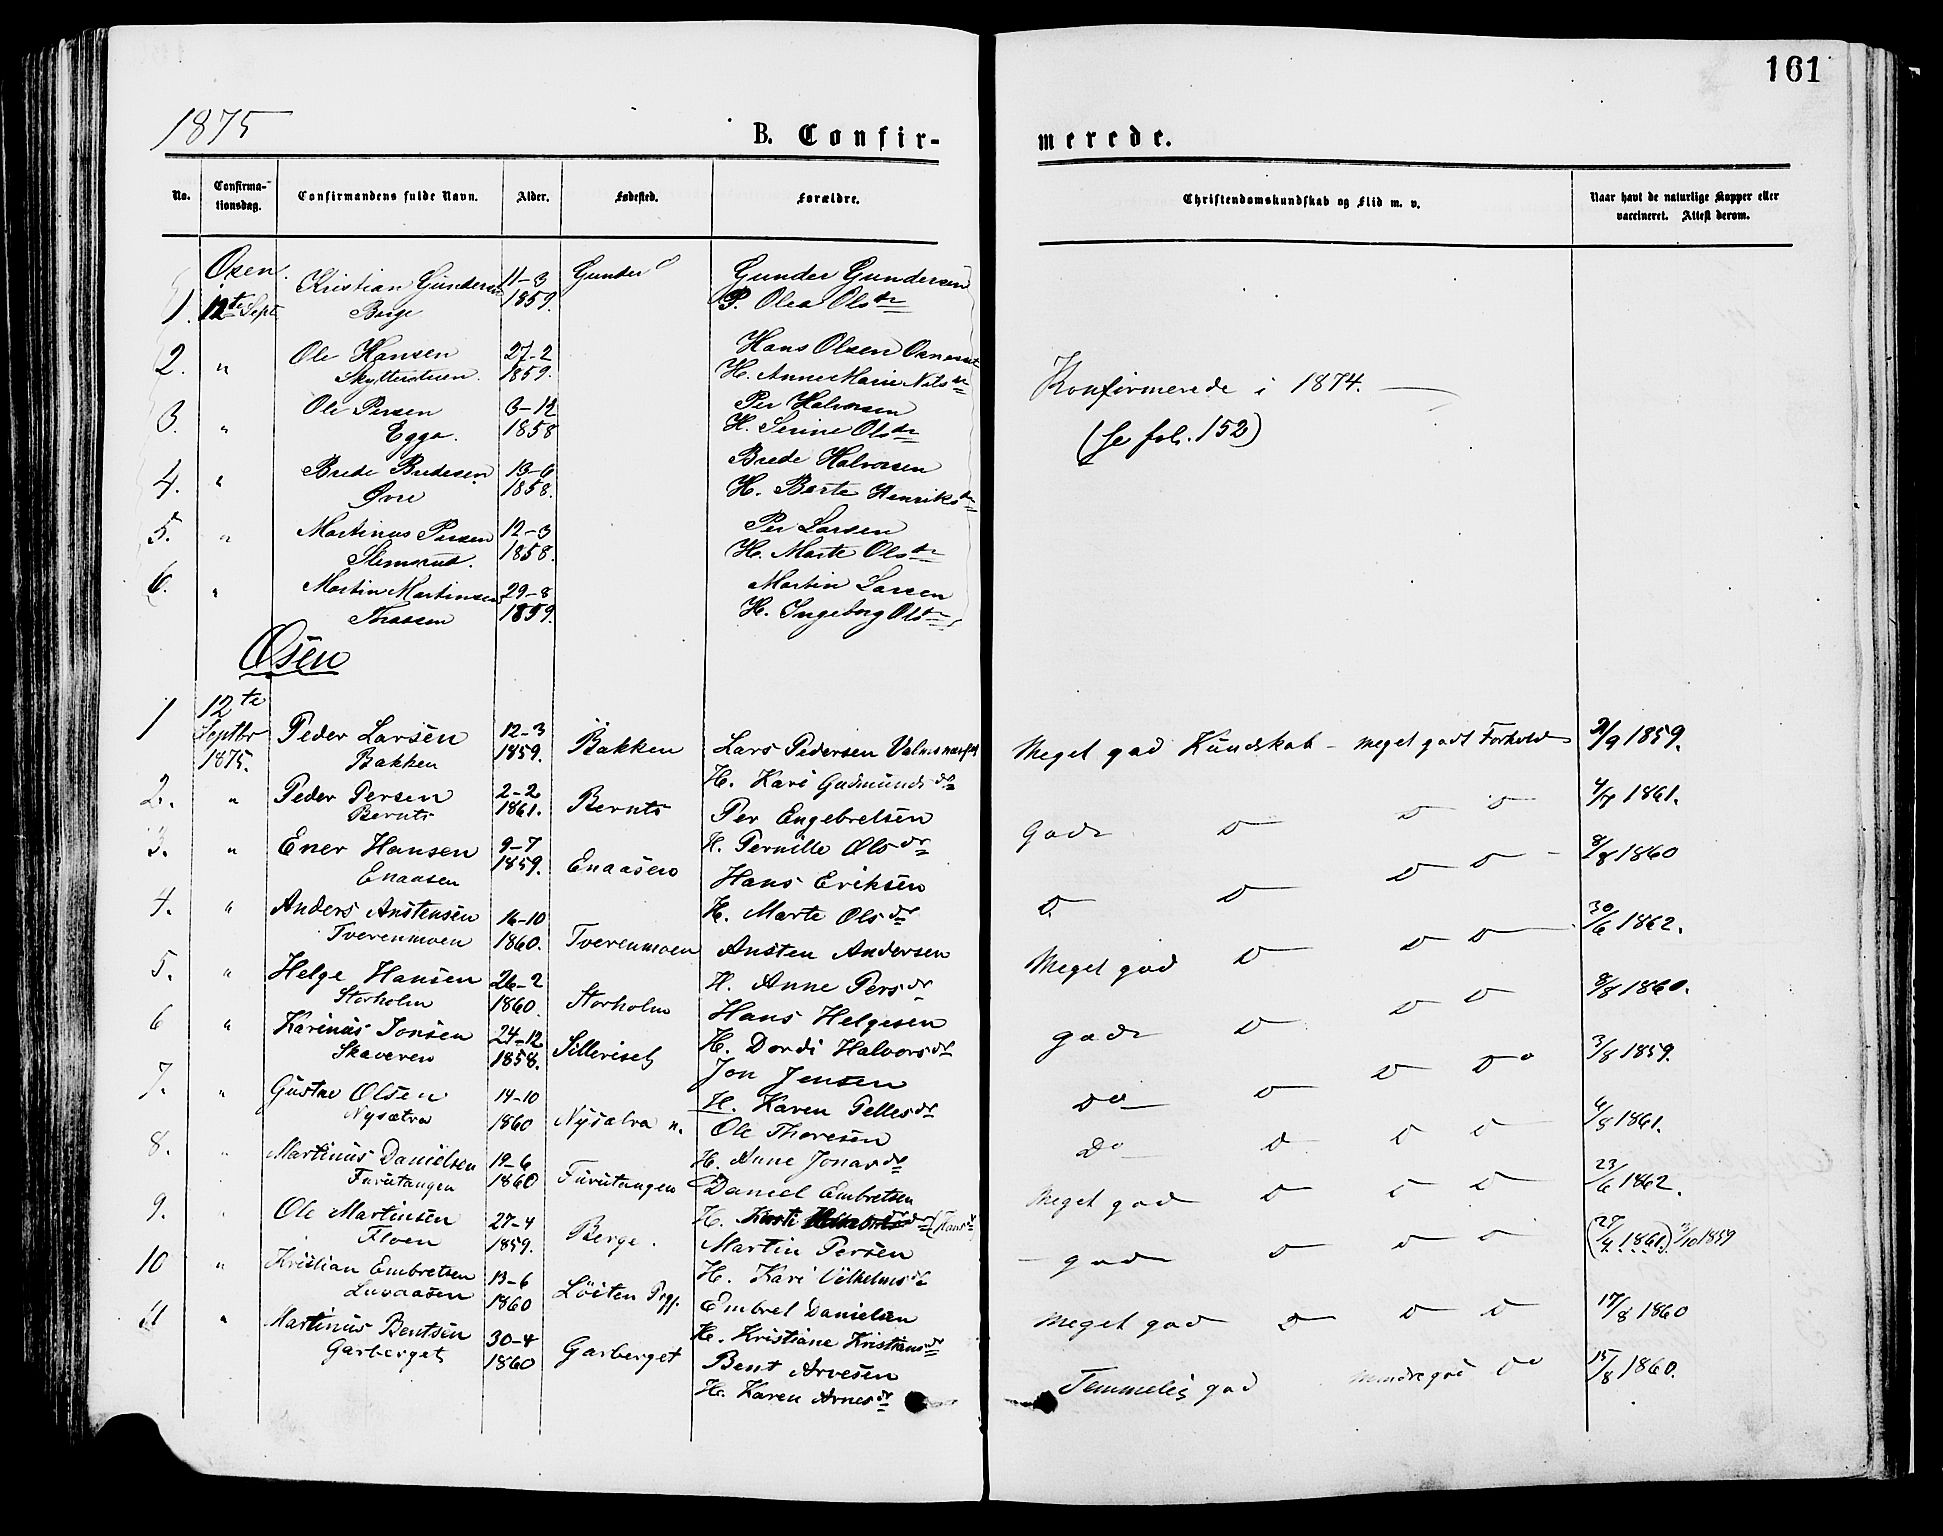 161
1875
B. Confir-
merede.
No.
Confirma-
tionsdag.
Confirmandens fulde Navn.
Alder.
Fødested.
Forældre.
Christendomskundskab og Flid m. v.
Naar havt de naturlige Kopper eller
vaccineret. Attest derom.
Osen.
1. 12te Sept Kristian Gundersen 11-3 Gunder Gunder Gundersen
Berge 1859. P. Olea Olsdr
2. " Ole Hansen 27-2 Hans Olsen
1859. H. Anne Marie Nilsdr
3. " Ole Persen 3-12 Per Halvorsen
Egga. 1858 H. Serine Olsdr
4. " Brede Bredesen 13-6 Brede Halvorsen
Øvre 1858. H. Berte Henriksdr
5. " Martinus Persen 12-3 Per Larsen
Stemsrud. 1858. H. Marte Olsdr
6. " Martin Martinsen 29-8 Martin Larsen
Thraasen 1859. H. Ingeborg Olsdr
Konfirmerede i 1874.
(se fol. 152)
Osen
1 12te
Septbr Peder Larsen 12-3 Bakken Lars Pedersen Meget god Kundskab - meget godt Forhold 2/9 1859.
1875. Bakken 1859. H. Kari Gudmundsdr
2. " Peder Persen 2-2 Bernts Per Engebretsen God D D D 4/7 1861.
Bernts 1861. H. Pernille Olsdr
3. " Ener Hansen 9-7 Enaasen Hans Eriksen D D D D 8/8 1860
Enaasen 1859. H. Marte Olsdr
4. " Anders Anstensen 16-10 Tverenmoen Ansten Andersen Meget god D D D 30/6 1862.
Tverenmoen 1860. H. Anne Persdr
5. " Helge Hansen 26-2 Storholm Hans Helgesen god D D D 8/8 1860.
Storholm 1860. H. Dordi Halvorsdr
6 " Karinus Jonsen 24-12 Jon Jensen Do D D Do 3/8 1859.
Skaveren 1858. H. Karen Pellesdr
7. " Gustav Olsen 14-10 Nysætra n. Ole Thoresen Do D D D 4/8 1861.
Nysætra 1860 H. Anne Jonasdr
8. " Martinus Danielsen 19-6 Furutangen Daniel Embretsen Meget god D D D 23/6 1862.
Furutangen 1860 H. Kersti (Hansdr
9. " Ole Martinsen 27-4 Berge. Martin Persen god D D D (27/7 1861.) 3/10 1859
Floen 1859. H. Kari Vilhelmsdr
10 " Kristian Embretsen 13-6 Löiten Prgj. Embret Danielsen Meget god D D D 17/8 1860
Luvaasen 1860 H. Kristiane Kristiansdr
11 " Martinus Bentsen 30-4 Garberget Bent Arvesen Temmelig god mindre god Do 15/8 1860.
Garberget 1860 H. Karen Arnesdr